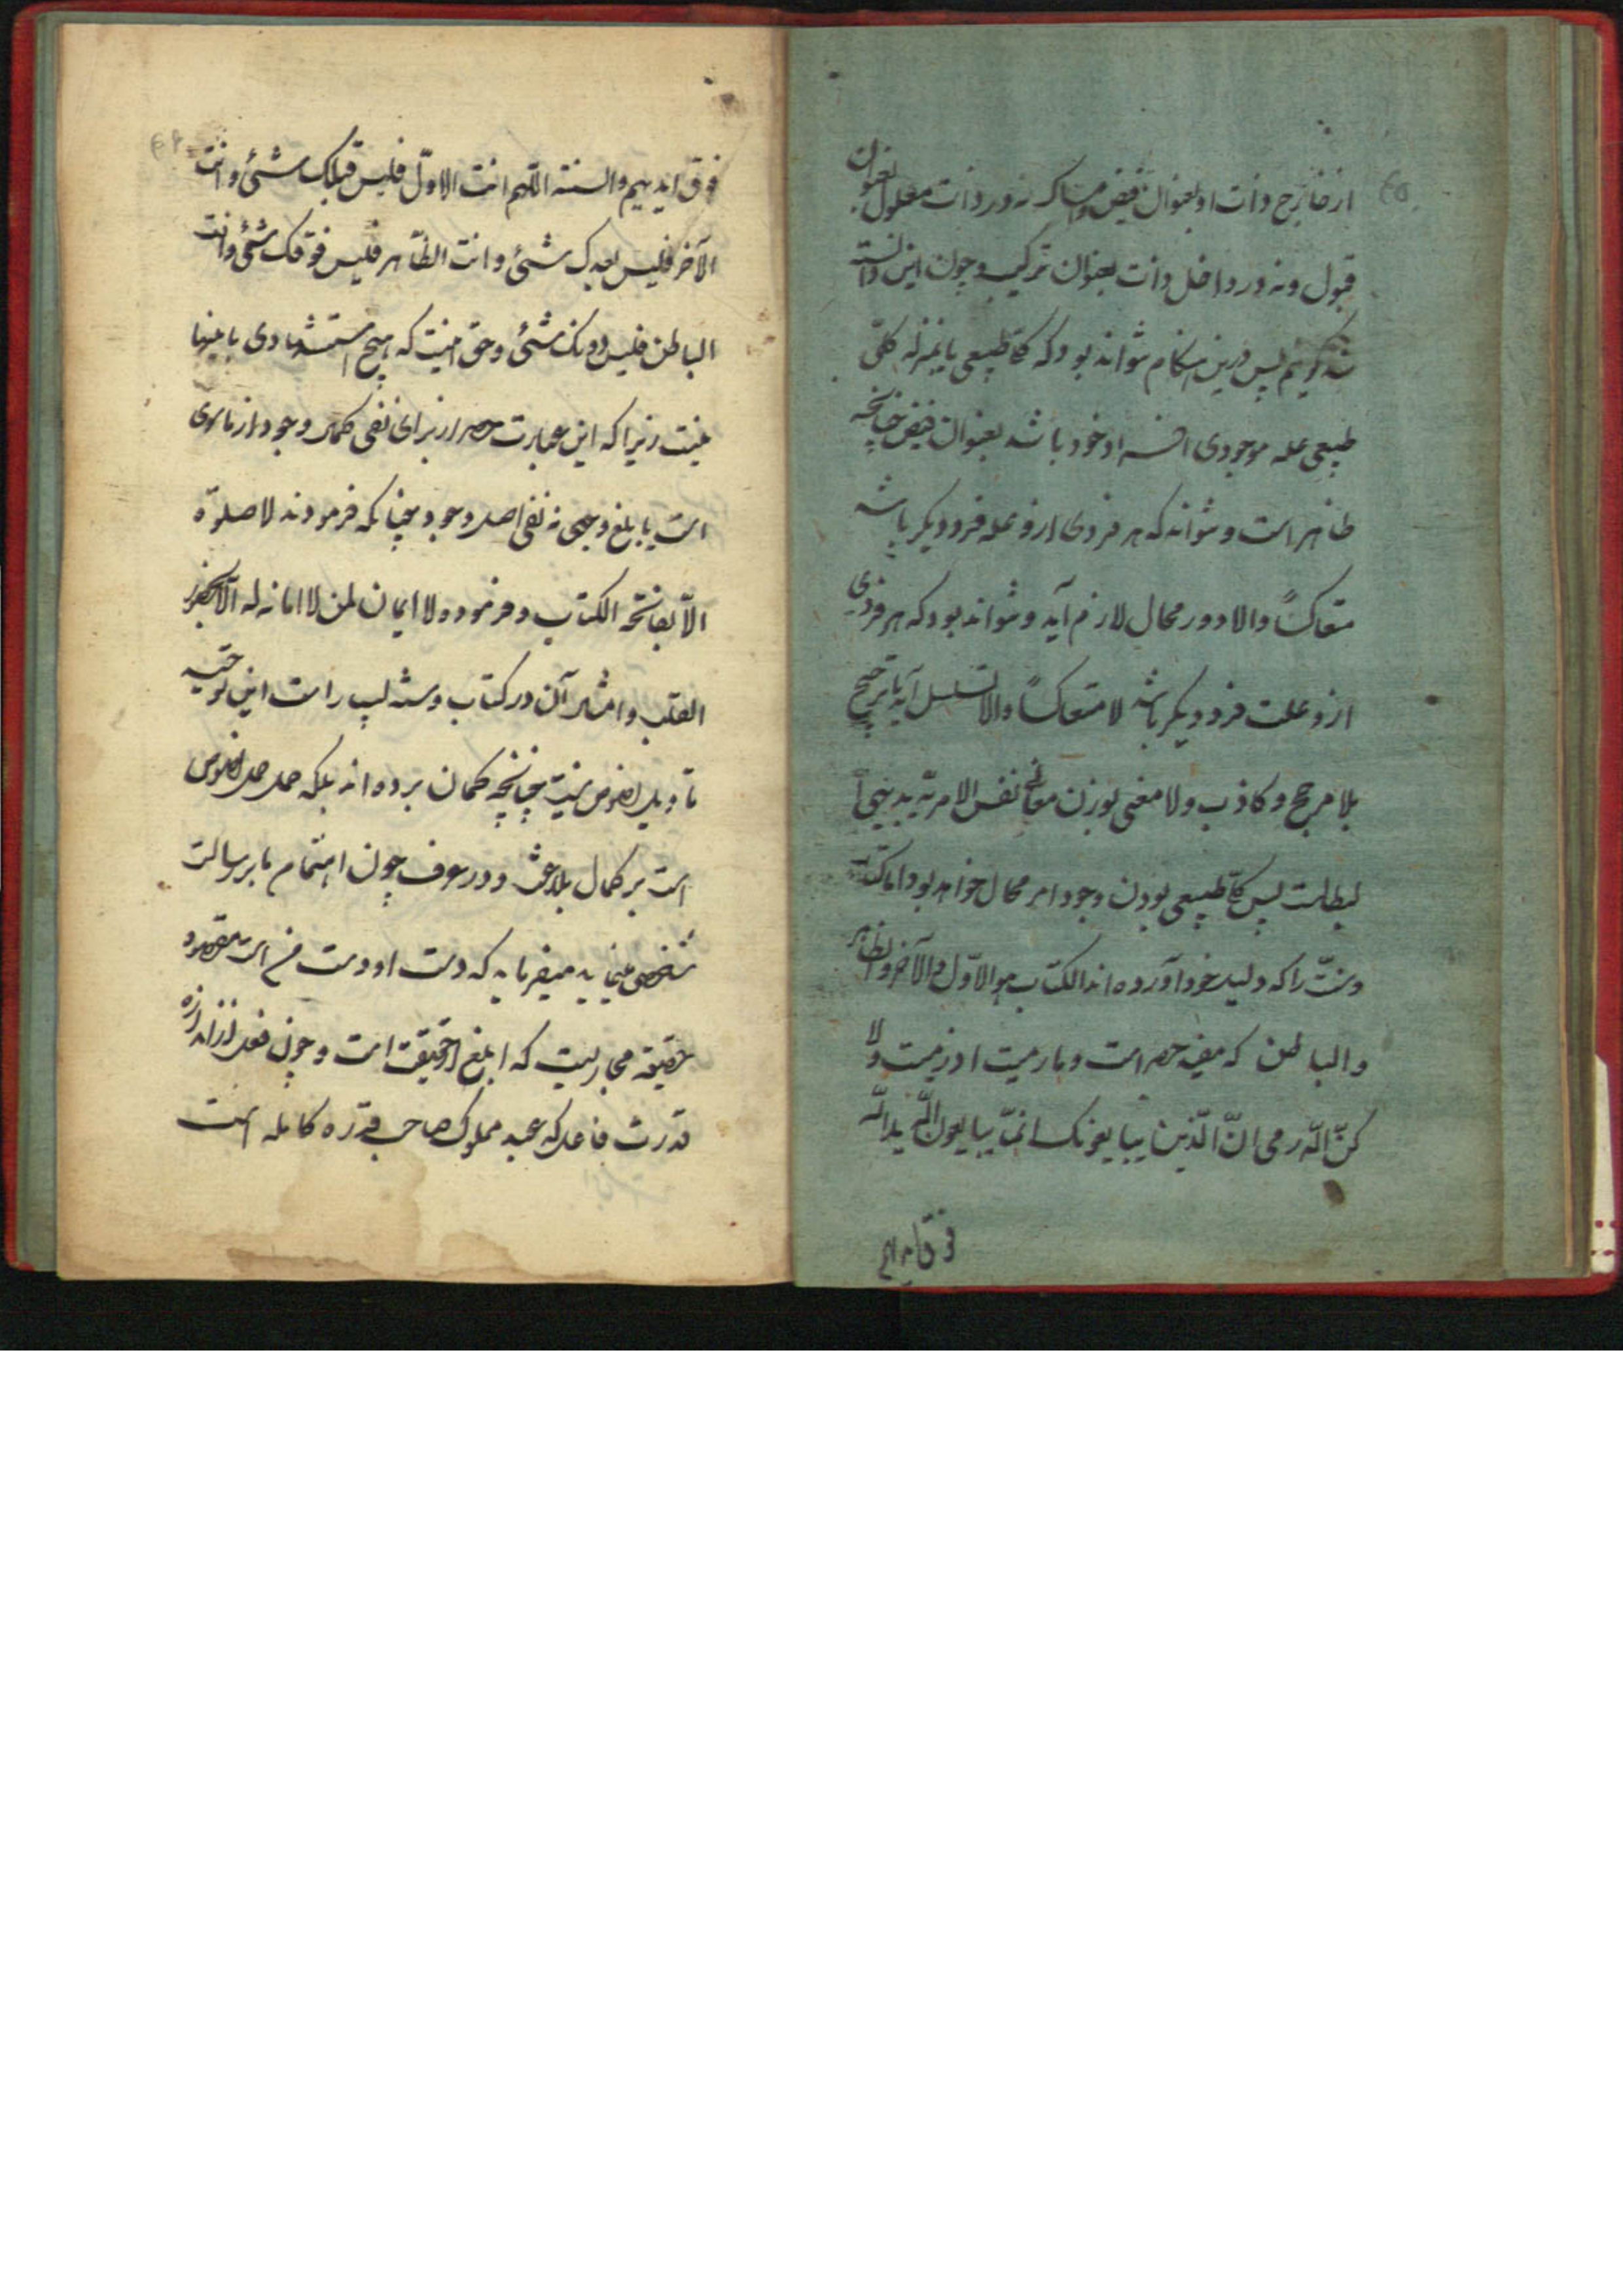 از خارج ذات او بعنوان فیض و امساک نه در ذات معلول بعنوان
قبول و نه در داخل ذات بعنوان ترکیب و چون این دانسته
شد گوئیم پس درین هنکام نتواند بود که کلی طبیعی یا بمنزله کلّی
طبیعی عله موجودی افراد خود باشد بعنوان فیض چنانچه
ظاهر است و نتواند که هر فردی ازو عله فرد دیکر باشد
متعاکساً والا دور محال لازم آید و نتواند بود که هر فردی
ازو علت فرد دیکر باشد لا متعاکساً والا تسلسل آید یا ترجیح
بلا مرجح و کاذب ولا معنی بودن معانی نفس الامریّه بدیهی
لبطلت پس کلی طبیعی بودن وجود امر محال خواهد بود اما کتاب
و سنّت را که دلیل خود آورده اند الکتاب هو الاوّل و الآخر و الظاهر
و الباطن که مفید حصر است و ما رمیت اذ رمیت و لا
کنّ اللّه رمی انّ الّذین یبایعونک انمّا یبایعون اللّه ید اللّه
فوق ایدیهم
فوق ایدیهم والسنته اللّهم انت الاوّل فلیس قبلک شئ و انت
الآخر فلیس بعدک شئ و انت الظّاهر فلیس فوقک شئ و انت
الباطن فلیس دونک شئ و حق اینست که هیچ استشهادی باینها
نیست زیرا که این عبارت حصر از برای نفی کمال وجود از ماسوی
است یا بلغ وجهی نه نفی اصل وجود چنانکه فرمودند لا صلوة
الاّ بفاتحة الکتاب و فرموده ولا ایمان لمن لا امانه له الاّ بحضور
القلب و امثال آن در کتاب و سنه بسیار است این توجیه
تاویل نصوص نیست چنانچه کمان برده اند بلکه حمل نصوص
است بر کمال بلاغت و در عرف چون اهتمام بابر رسالت
شخصی مینماید میفرماید که دست او دست من است مقصود
حقیقة مجازیست که ابلغ از حقیقت است و چون فعل از اندازه
قدرت فاعل که عبد مملوک صاحب قدره کامله است